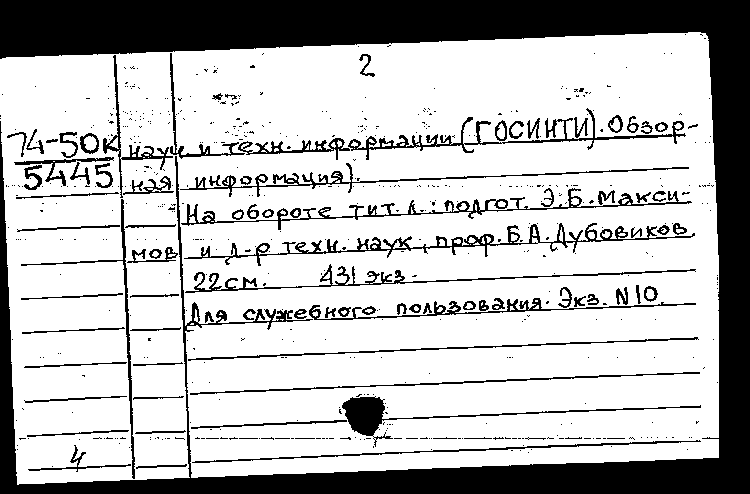 2
74-50к научн и техн. информации (ГОСИНТИ). Обзор-
5445 ная информация).
На обороте тит. л.: подгот. Э.Б. Макси-
мов и д-р техн. наук, проф. Б.А. Дубовиков.
22 см. 431 экз.
Для служебного пользования. Экз. N 10.
4